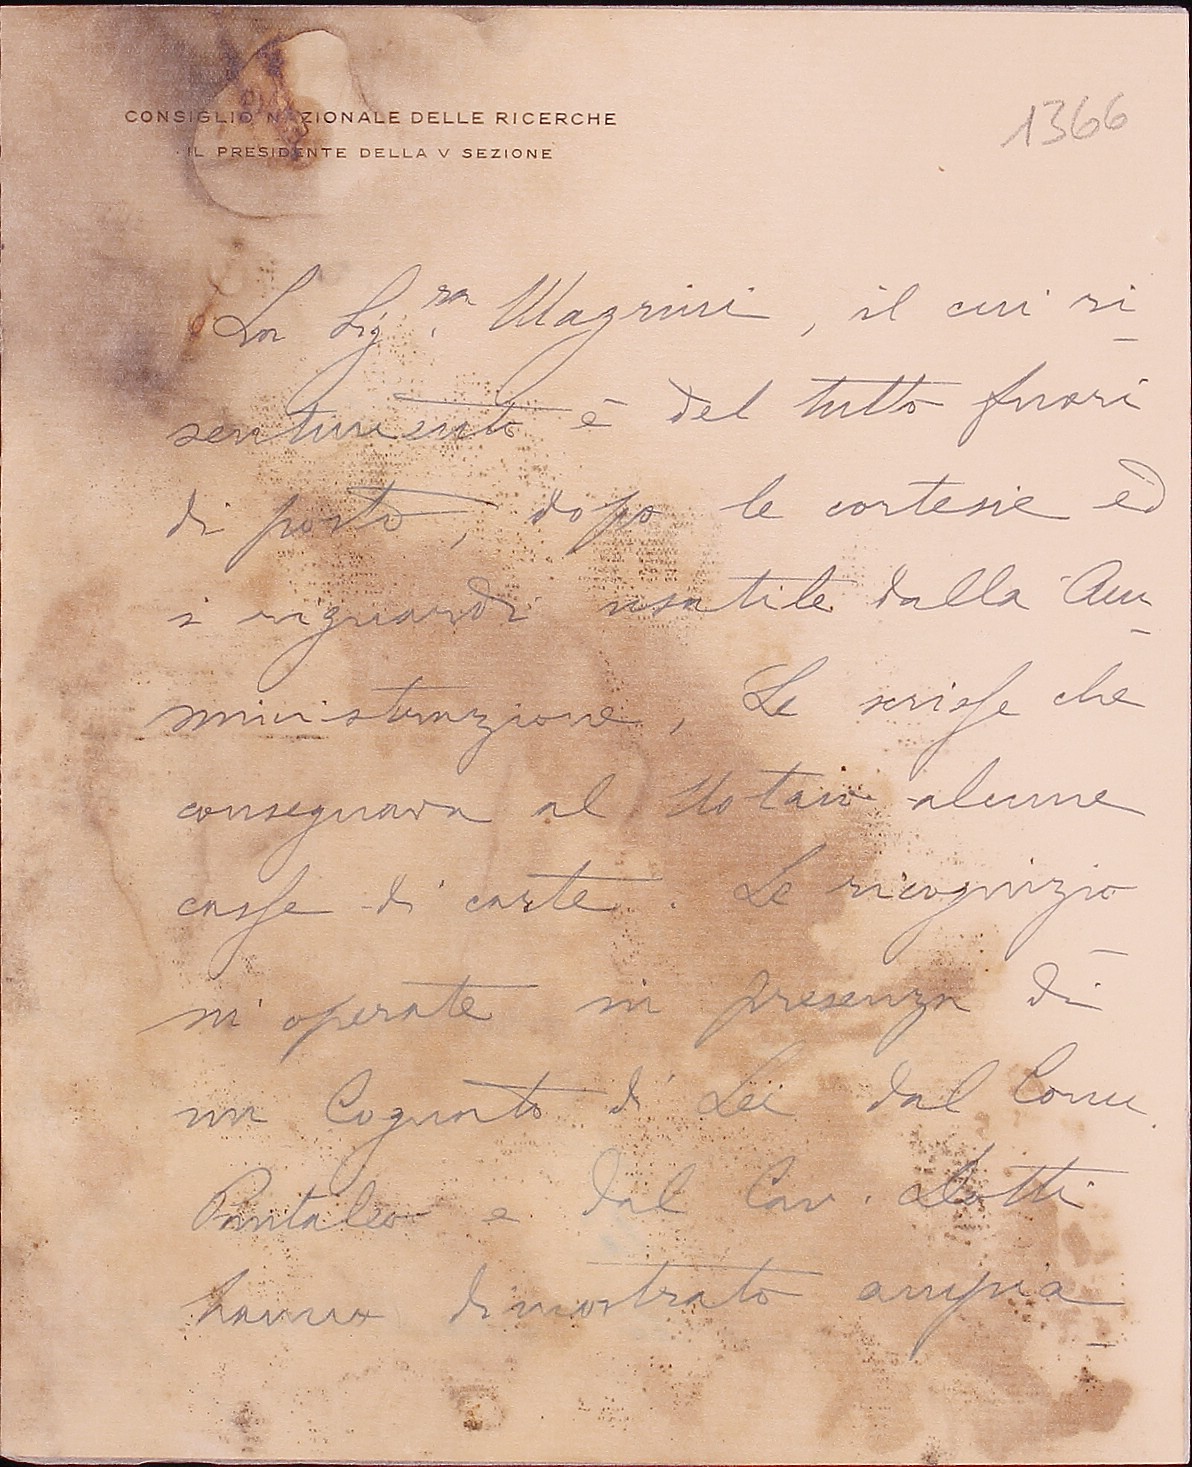 CONSIGLIO NAZIONALE DELLE RICERCHE
IL PRESIDENTE DELLA V SEZIONE
1366
La Sig.ra Magrini, il cui ri
sentimento è del tutto fuori
di posto, dopo le cortesie ed
i riguardi usatile dalla Am
ministrazione, Le scrisse che
consegnava al Notaio alcune
casse di carte. Le ricognizio
ni operate in presenza di
un Cognato di Lei dal Comm.
Pantaleo e dal Cav. Dotti
hanno dimostrato ampia